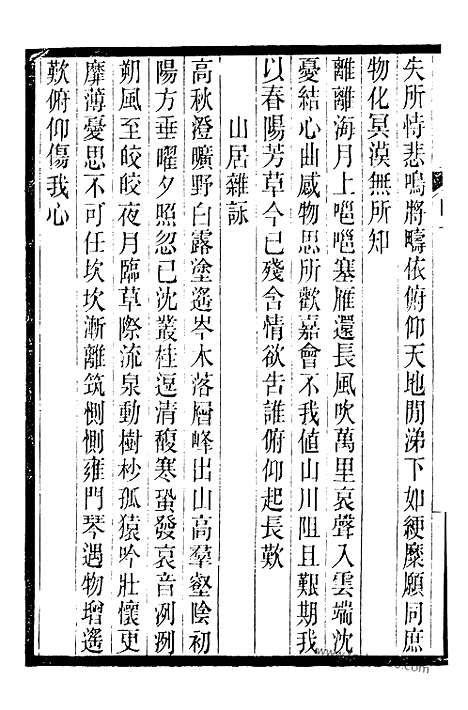 失所恃悲鳴將疇依俯仰天地閒涕下如綆縻願同庶
物化冥漠無所知
離離海月上嗈嗈塞雁還長風吹萬里哀聲入雲端沈
憂結心曲感物思所歡嘉會不我値山川阻且艱期我
以春陽芳草今已殘含情欲告誰俯仰起長歎
山居雜詠
高秋澄曠野白露塗遙岑木落層峰出山高羣壑陰初
陽方垂曜夕照忽已沈叢桂逗清馥寒蛩發哀音冽冽
朔風至皎皎夜月臨草際流泉動樹杪孤猿吟壯懷更
靡薄憂思不可任坎坎漸離筑惻惻雍門琴遇物增遙
歎俯仰傷我心